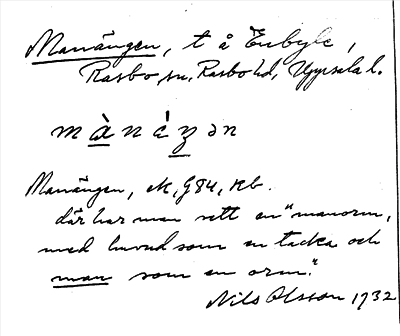 Manängen, t å Enbyle,
Rasbo sn, Rasbo hd, Uppsala l.
m à n é z ə n
Manängen, ek, G84, Kb.
där har man sett en "manorm,
med huvud som en tacka och
man som en orm."
Nils Olsson 1932